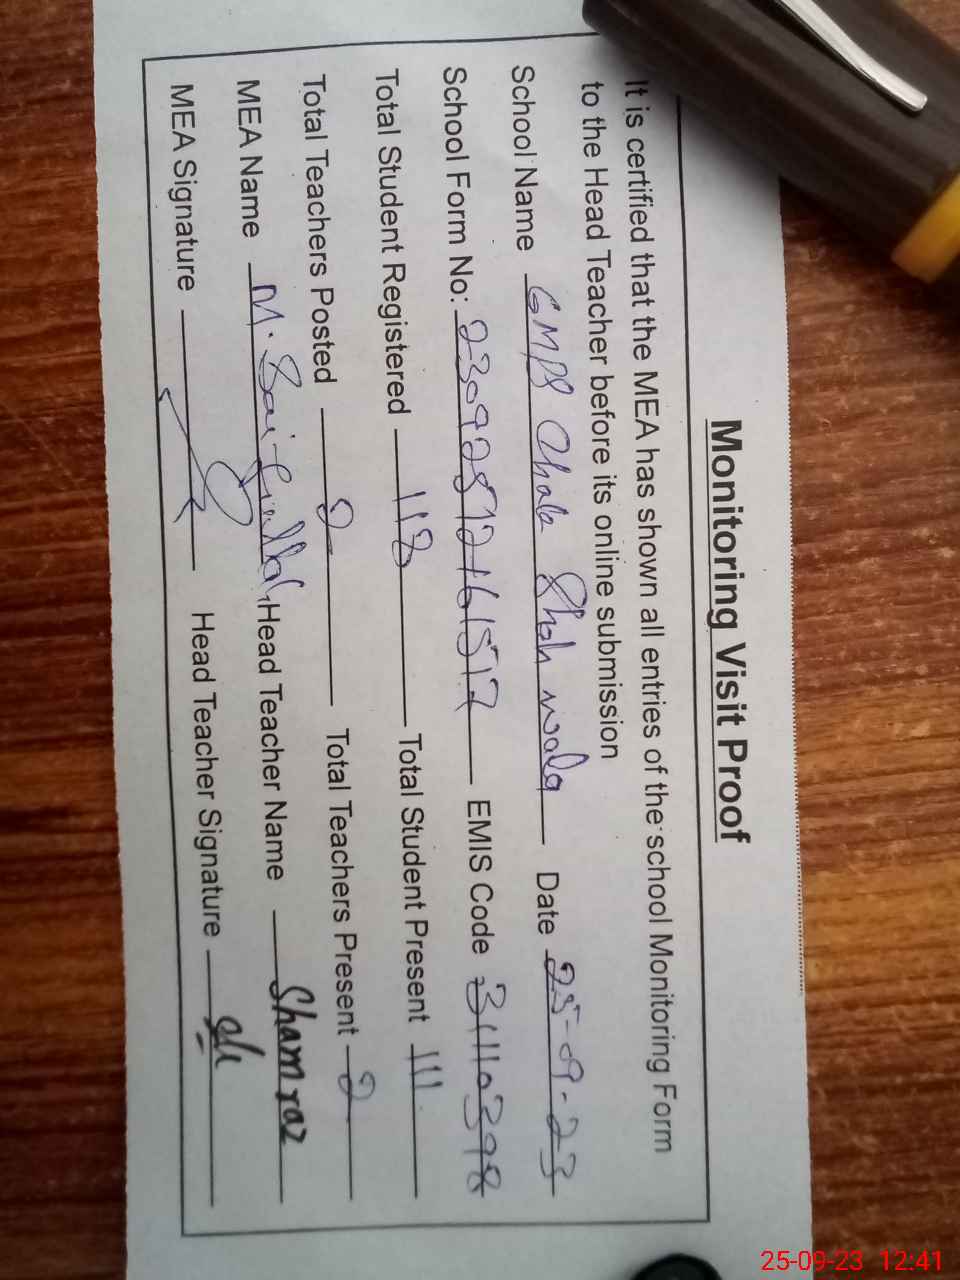 Monitoring Visit Proof
It is certified that the MEA has shown all entries of the school Monitoring Form
to the Head Teacher before its online submission
School Name GMPS Chak Shah wala Date 25-09-23
School Form No: EMIS Code 31110398
Total Student Registered 118 Total Student Present 111
Total Teachers Posted 2 Total Teachers Present 2
MEA Name M. Head Teacher Name Shamraz
MEA Signature Head Teacher Signature
25-09-23 12:41